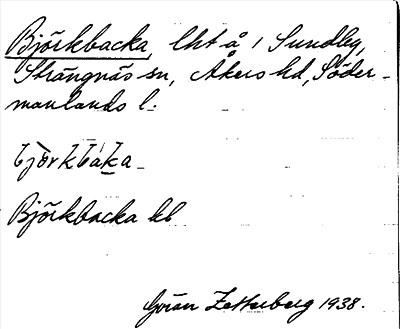 Björkbacka, lht å 1 Sundby,
Strängnäs sn, Åkers hd, Söder-
manlands l.
björkbaka
Björkbacka hb
Göran Zetterberg 1938.